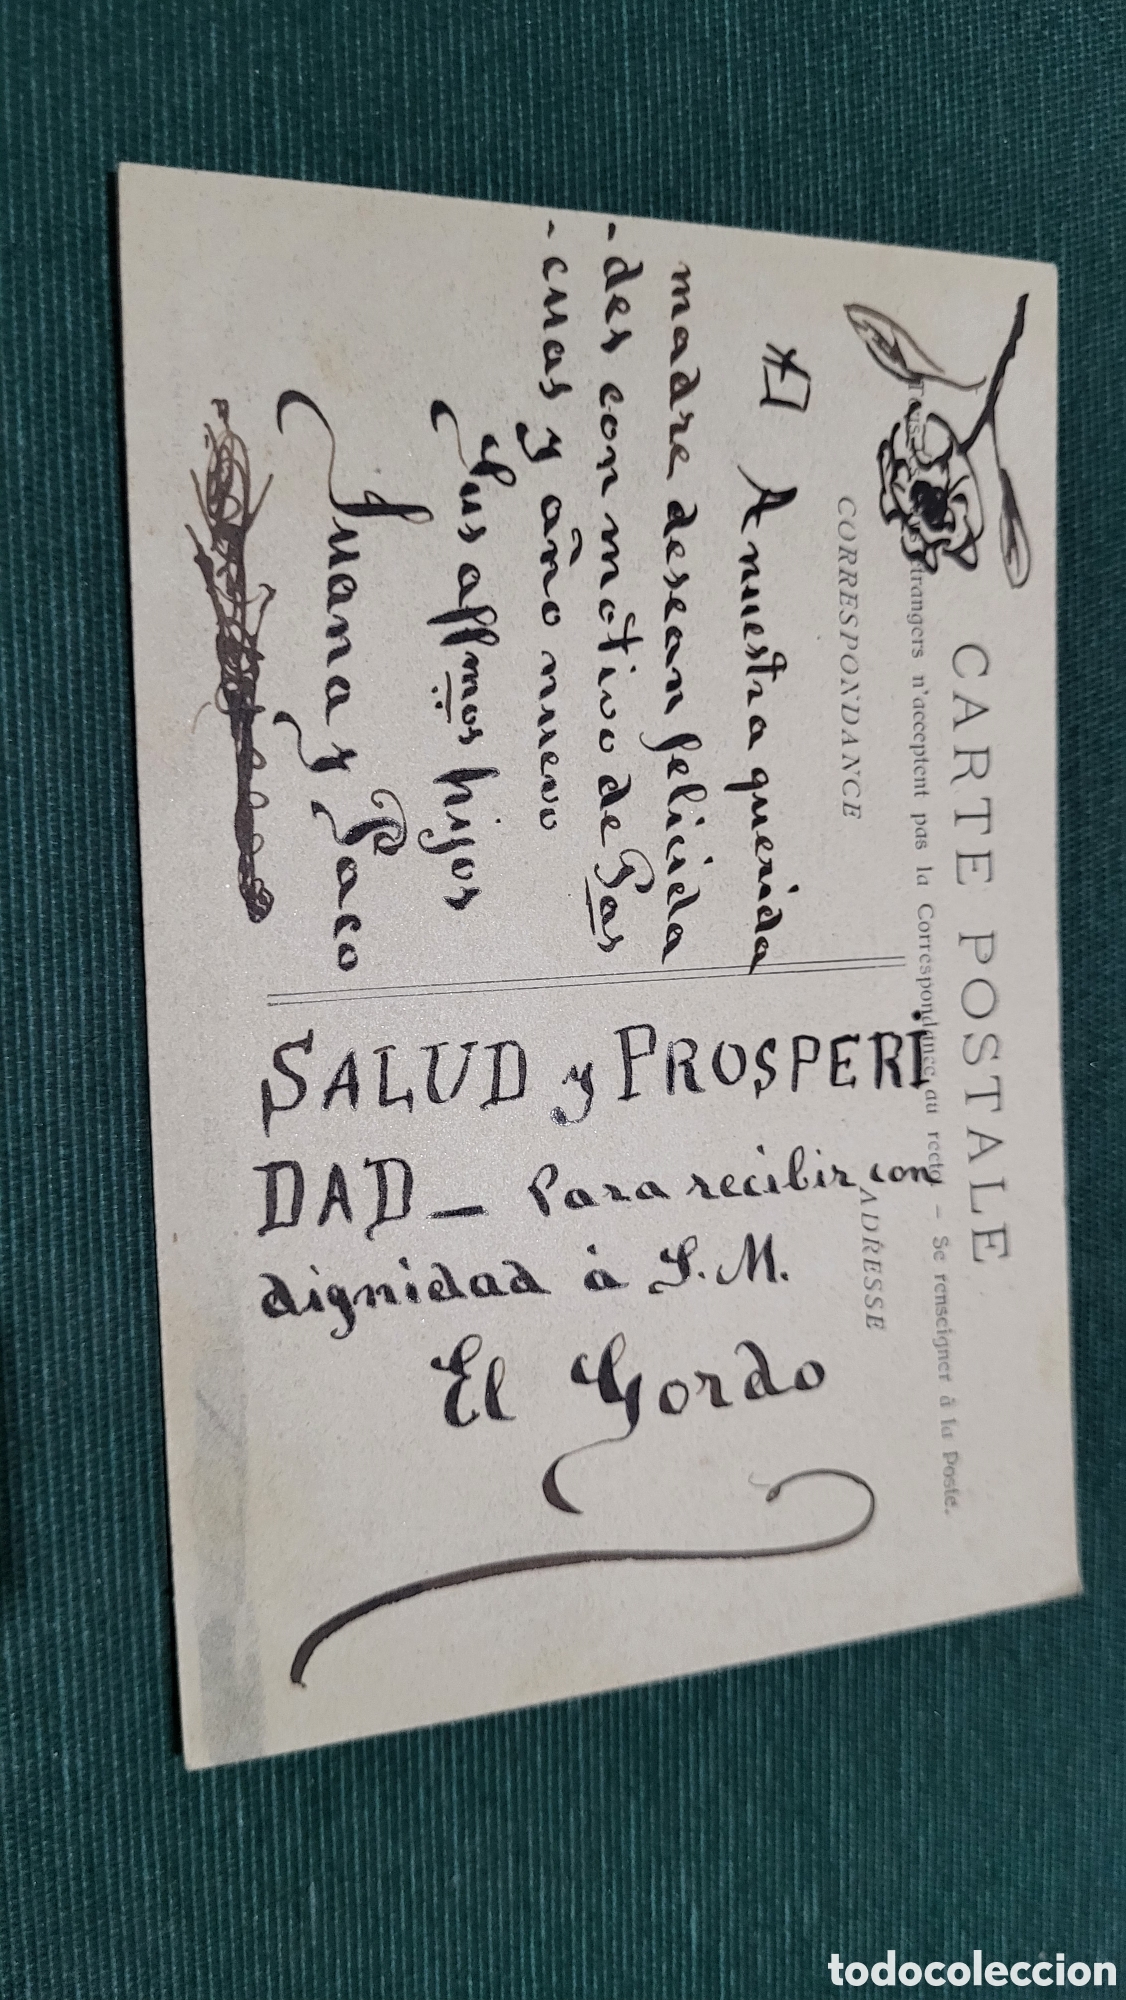 CARTE POSTALE
Tous étrangers n'acceptent pas la Correspondance au recto - Se renseigner à la Poste.
CORRESPONDANCE
A nuestra querida
madre desean felicida
-des con motivo de Pas
-cuas y año nuevo
Sus affmos hijos
Juana y Paco
ADRESSE
SALUD y PROSPERI
DAD - Para recibir con
dignidad á S. M.
El Gordo
todocoleccion